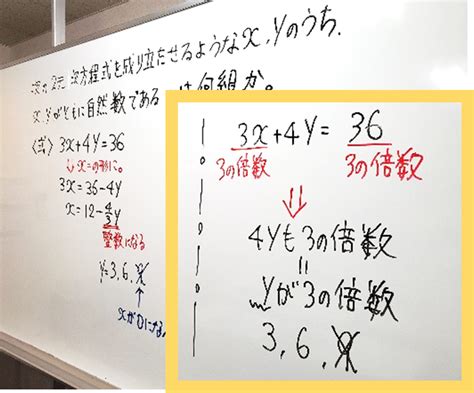 次の2元一次方程式を成り立たせるようなx,yのうち、
x,yがともに自然数である は何組か。
〈式〉 3x+4y=36
↓ x=の形に。
3x=36-4y
x=12-4/3y
整数になる
y=3,6,9
↑
xが0になる
3x+4y=36
3の倍数 3の倍数
⇓
4yも3の倍数
=
yが3の倍数
3,6,9